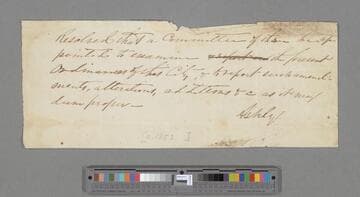 Resolved that a Committee of three be ap
pointed to examine report on the present
Ordinances of this City, & to report such amend
ments, alterations, additions &c as it may
deem proper —
Ashley